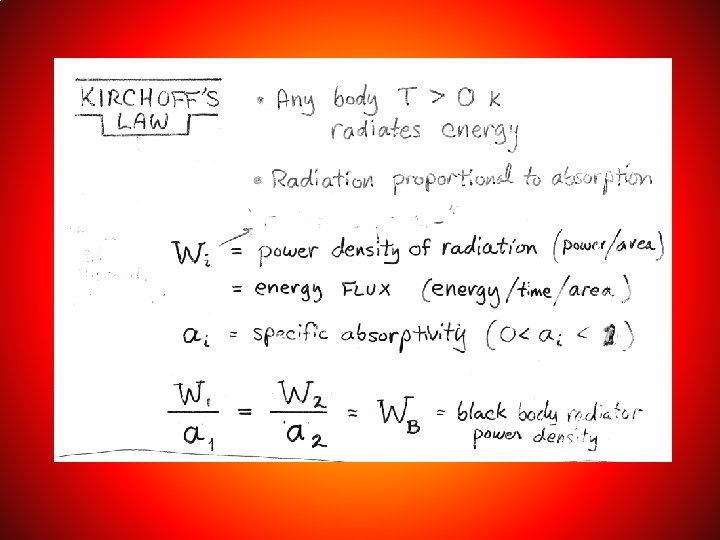 KIRCHOFF'S
LAW
• Any body T > 0 K
radiates energy
• Radiation proportional to absorption
Wi = power density of radiation (power/area)
= energy FLUX (energy/time/area)
ai = specific absorptivity (0< ai < 1)
W1/a1 = W2/a2 = WB = black body radiator
power density